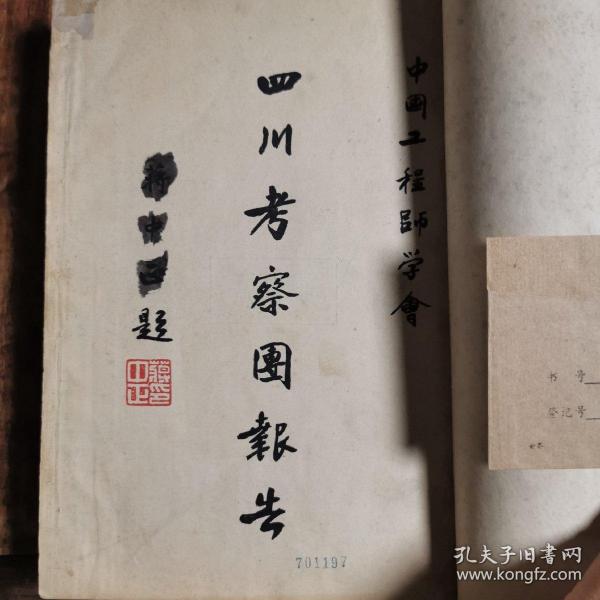 中國工程師学會
四川考察團報告
蔣中正題
蔣中正印
701197
书号
登记号
孔夫子旧书网
www.kongfz.com